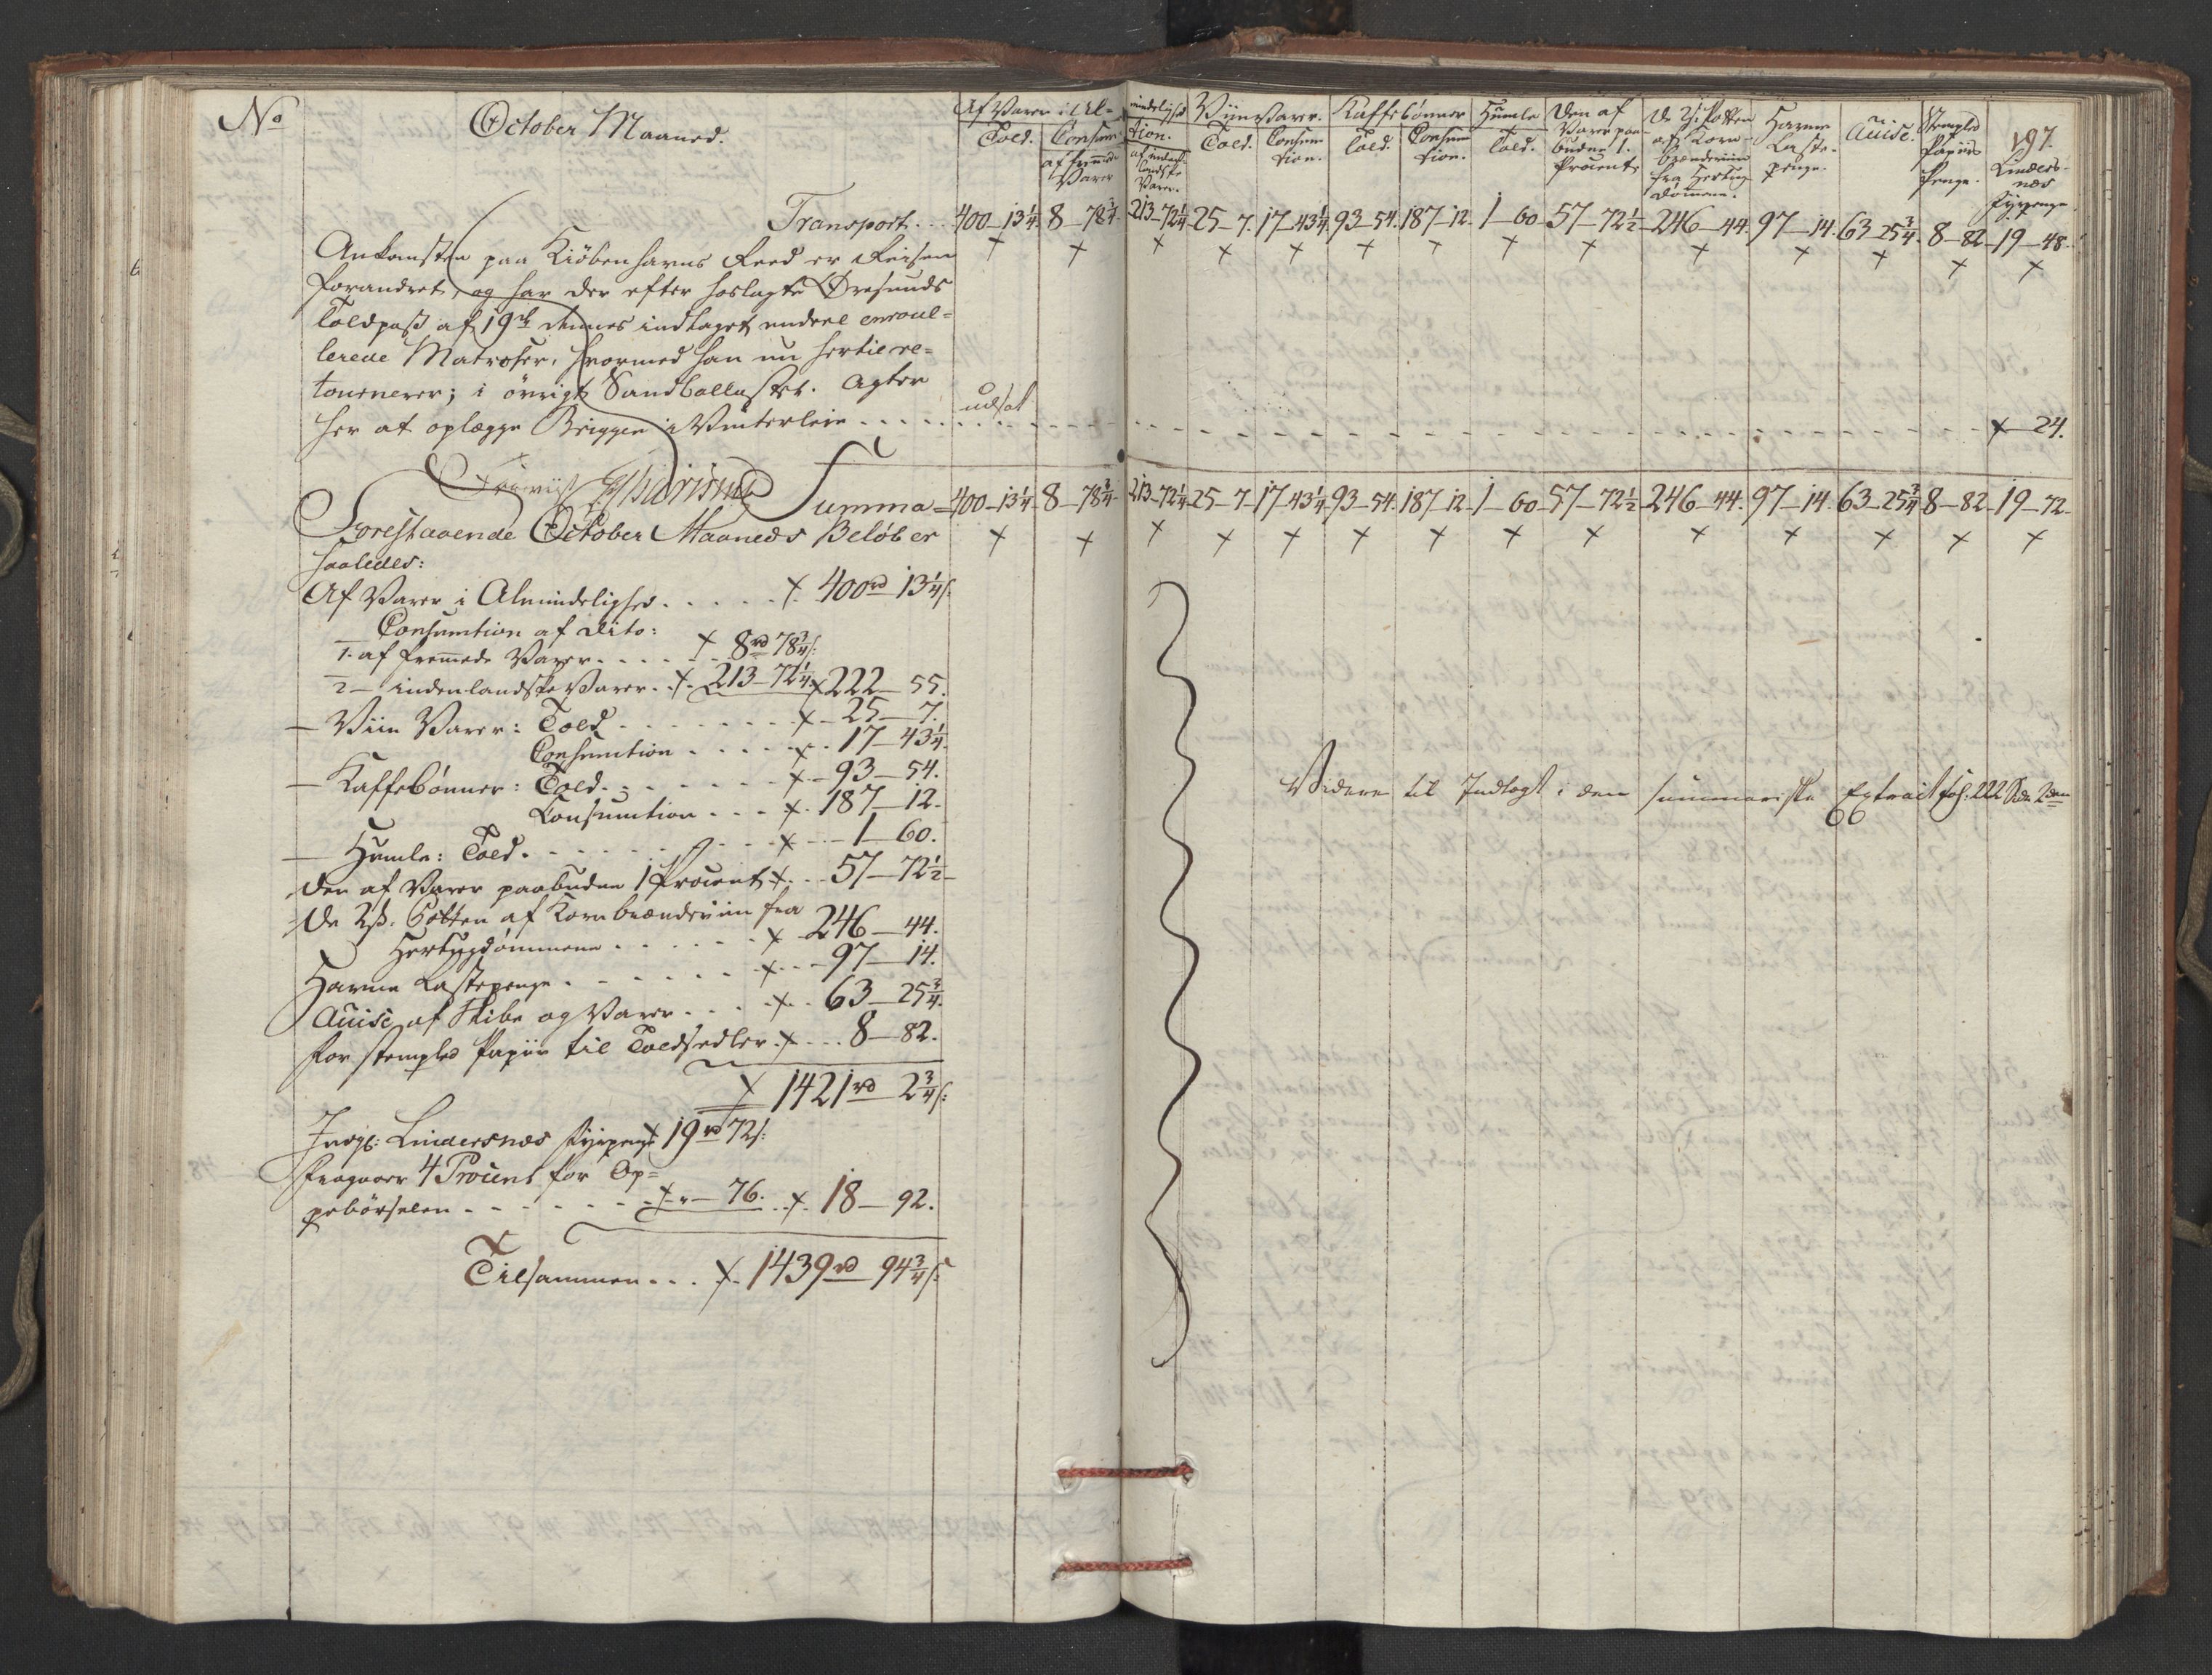 No
October Maaned.
Af Varer i Al-
Told.
Consum-
af fremde Varer
mindelighed
tion.
af indenlandske Varer.
Viin Varer.
Told.
Consumtion.
Kaffebönner
Told.
Consumtion.
Humle
Told.
Den af Varer paabudne 1. Procent
De 2 ß Potten af Kornbrændeviin fra Hertugdömmene.
Havne Lastepenge.
Accise.
Stemplet Papiirs Penge.
197.
Lindersnæs Fyrpenge.
Transport... 400-13¼ 8-78¾ 213-72¼ 25-7. 17-43¼ 93-54. 187-12. 1-60 57-72½ 246-44. 97-14. 63-25¾ 8-82 19-48.
Ankomsten paa Kiöbenhavns Reed er Reisen
forandret, og har der efter hoslagte Öresunds
Toldpass af 19de dennes indtaget endeel enroul=
lerede Matroser, hvormed han nu hertil re=
tournerer; i övrigt Sandballastet. Agter
her at oplægge Briggen i Vinterleie.... udsat x 24.
Summa = 400-13¼ 8-78¾ 213-72¼ 25-7. 17-43¼ 93-54. 187-12. 1-60 57-72½ 246-44. 97-14. 63-25¾ 8-82 19-72
Forestaaende October Maaneds Belöb er
saaledes:
Af Varer i Almindelighed..... x 400rd 13¼ s.
Consumtion af dito:
1. af fremmede Varer..... x 8rd 78¾ s:
2- indenlandske Varer. x 213-72¼ x 222-55.
- Viin Varer: Told........ x 25-7.
Consumtion..... x 17-43¼.
- Kaffebönner: Told...... x 93-54.
Consumtion... x 187-12.
- Humle: Told........ x 1-60.
den af Varer paabudne 1 Procent x.. 57-72½
De 2ß. Potten af Kornbrændeviin fra
Hertugdömmene...... x 246-44.
Havne Lastepenge....... x 97-14.
Accise af Skibe og Varer.... x 63-25¾.
for stemplet Papiir til Toldsedler. x... 8-82.
x 1421rd 2¾ s:
Lindersnæs Fyrpenge x 19rd 72 s:
fragaaer 4 Procent for Op=
pebörselen...... x " - 76. x 18-92.
Tilsammen... x 1439rd 94¾ s:
Videre til Indtægt i den summariske Extract fol: 222 Side 2den
66